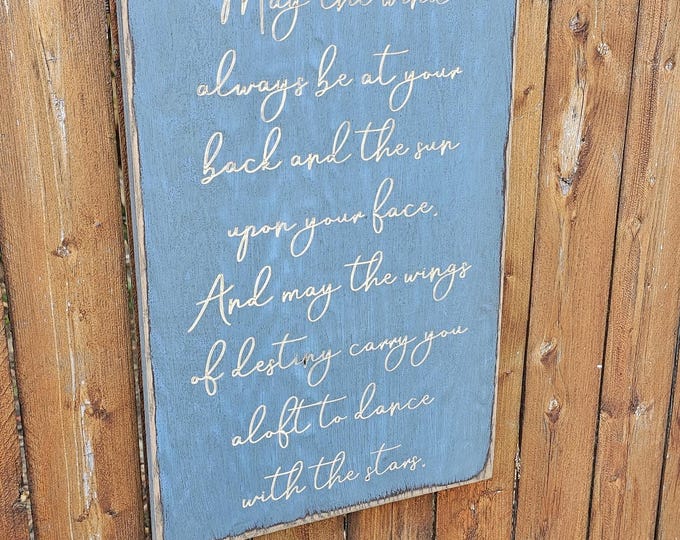 May the wind
always be at your
back and the sun
upon your face.
And may the wings
of destiny carry you
aloft to dance
with the stars.